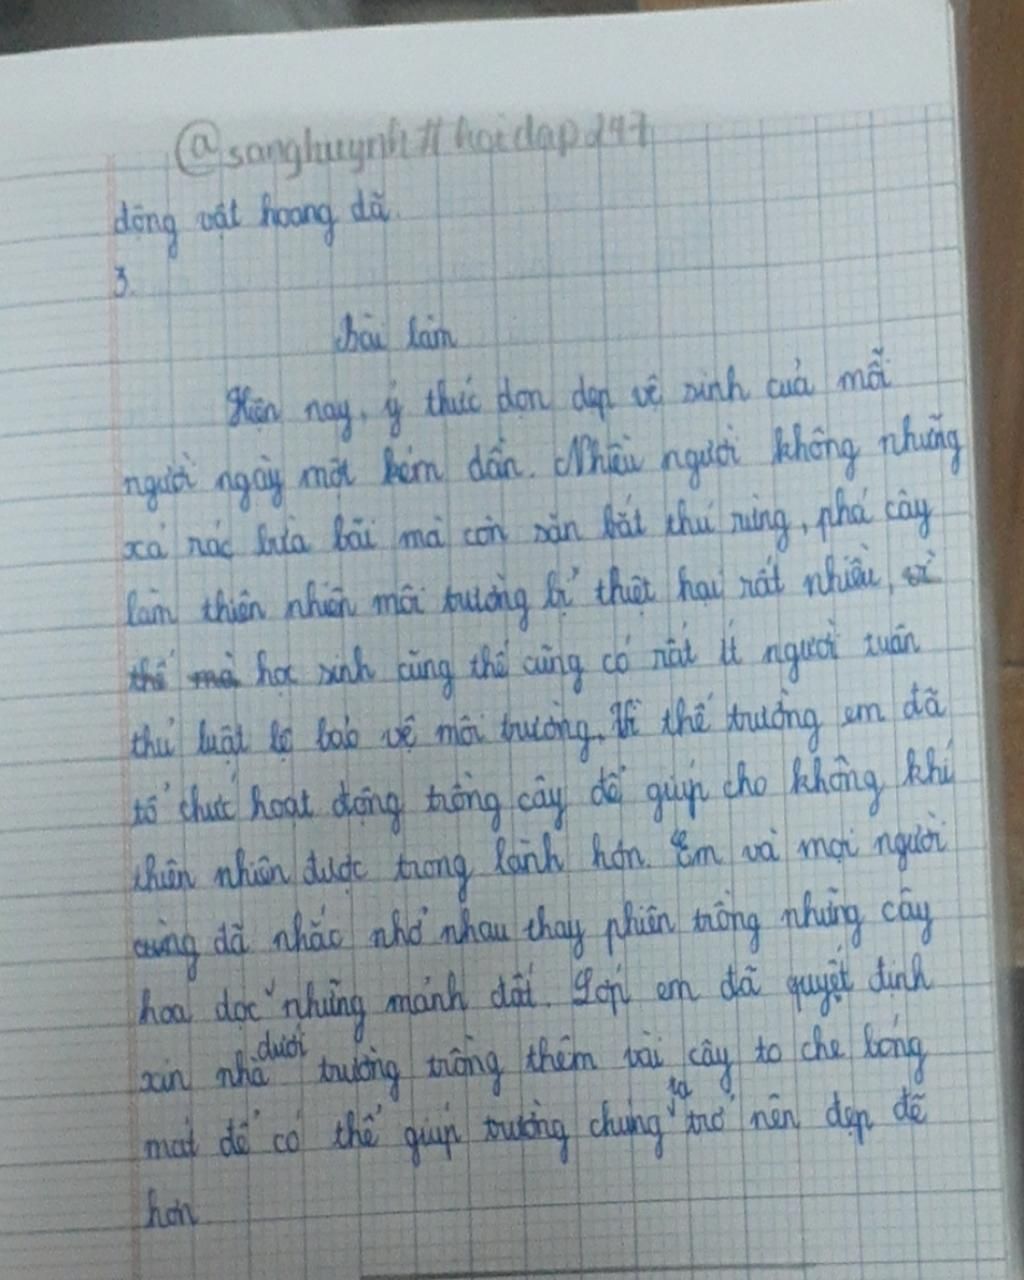 @sanghuynh#hoidap247
động vật hoang dã.
3.
bài làm
Hiện nay, ý thức dọn dẹp vệ sinh của mỗi
người ngày một kém dần. Nhiều người không những
xả rác bừa bãi mà còn săn bắt thú rừng, phá cây
làm thiên nhiên môi trường bị thiệt hại rất nhiều,
học sinh cũng thế cũng có rất ít người tuân
thủ luật lệ bảo vệ môi trường. Vì thế trường em đã
tổ chức hoạt động trồng cây để giúp cho không khí
thiên nhiên được trong lành hơn. Em và mọi người
cùng đã nhắc nhở nhau thay phiên trồng những cây
hoa dọc dưới những mảnh đất. Lớp em đã quyết định
xin nhà trường trồng thêm vài cây to che bóng
mát để có thể giúp trường chúng ta trở nên đẹp đẽ
hơn